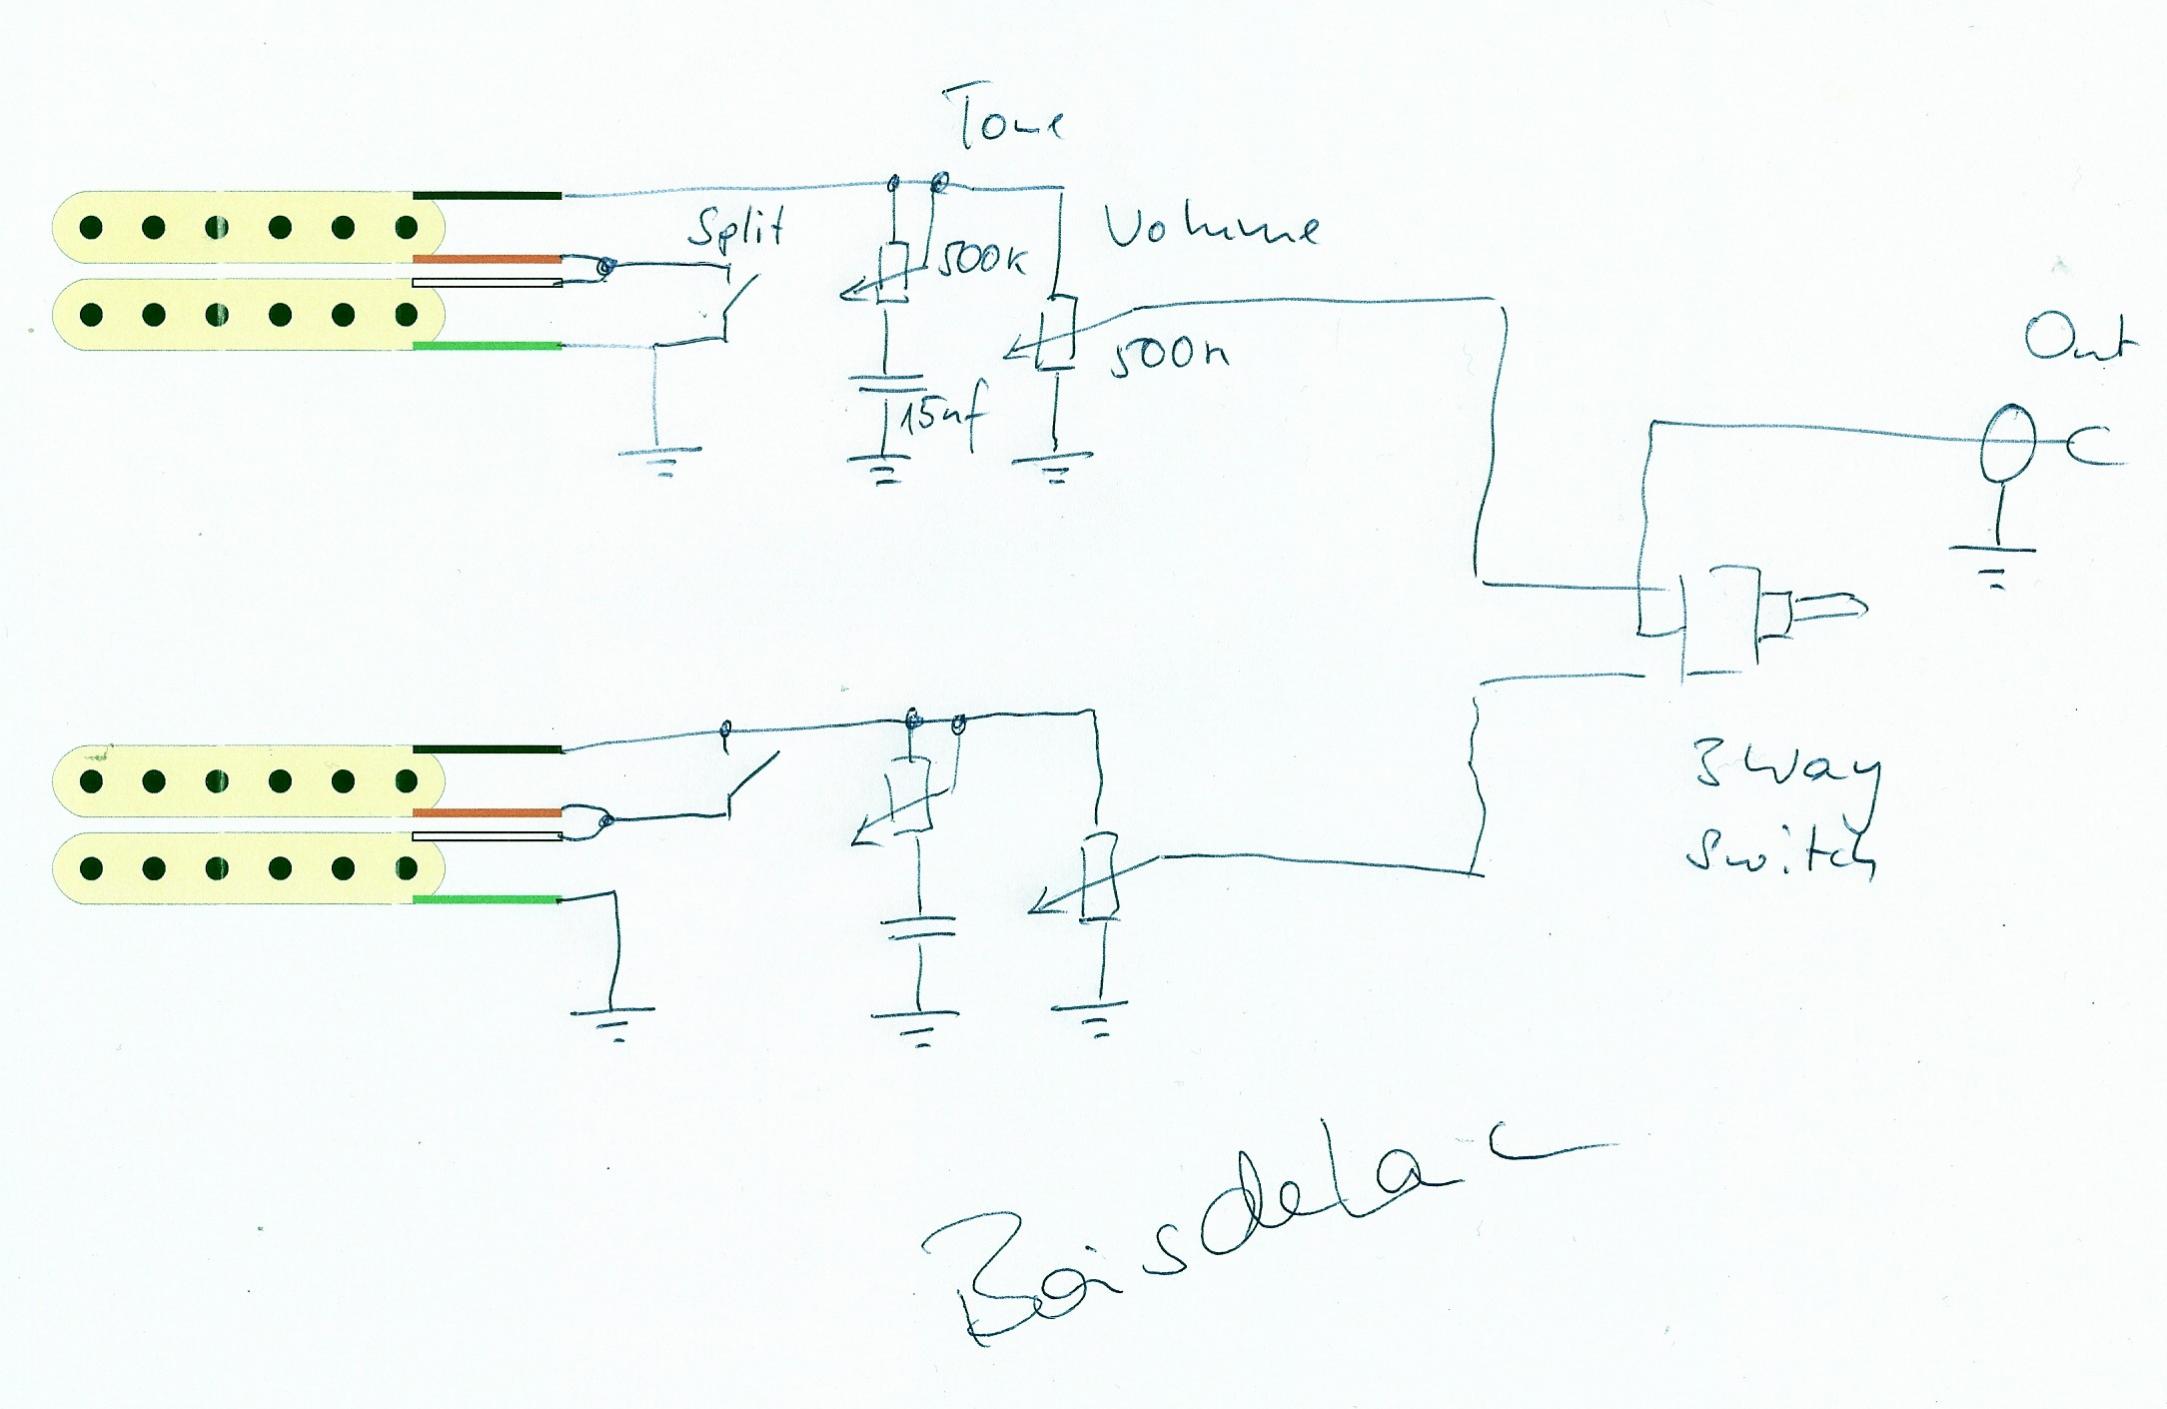 Tone
Split
Volume
500k
500k
15nf
Out
3 Way
Switch
Boisdelac